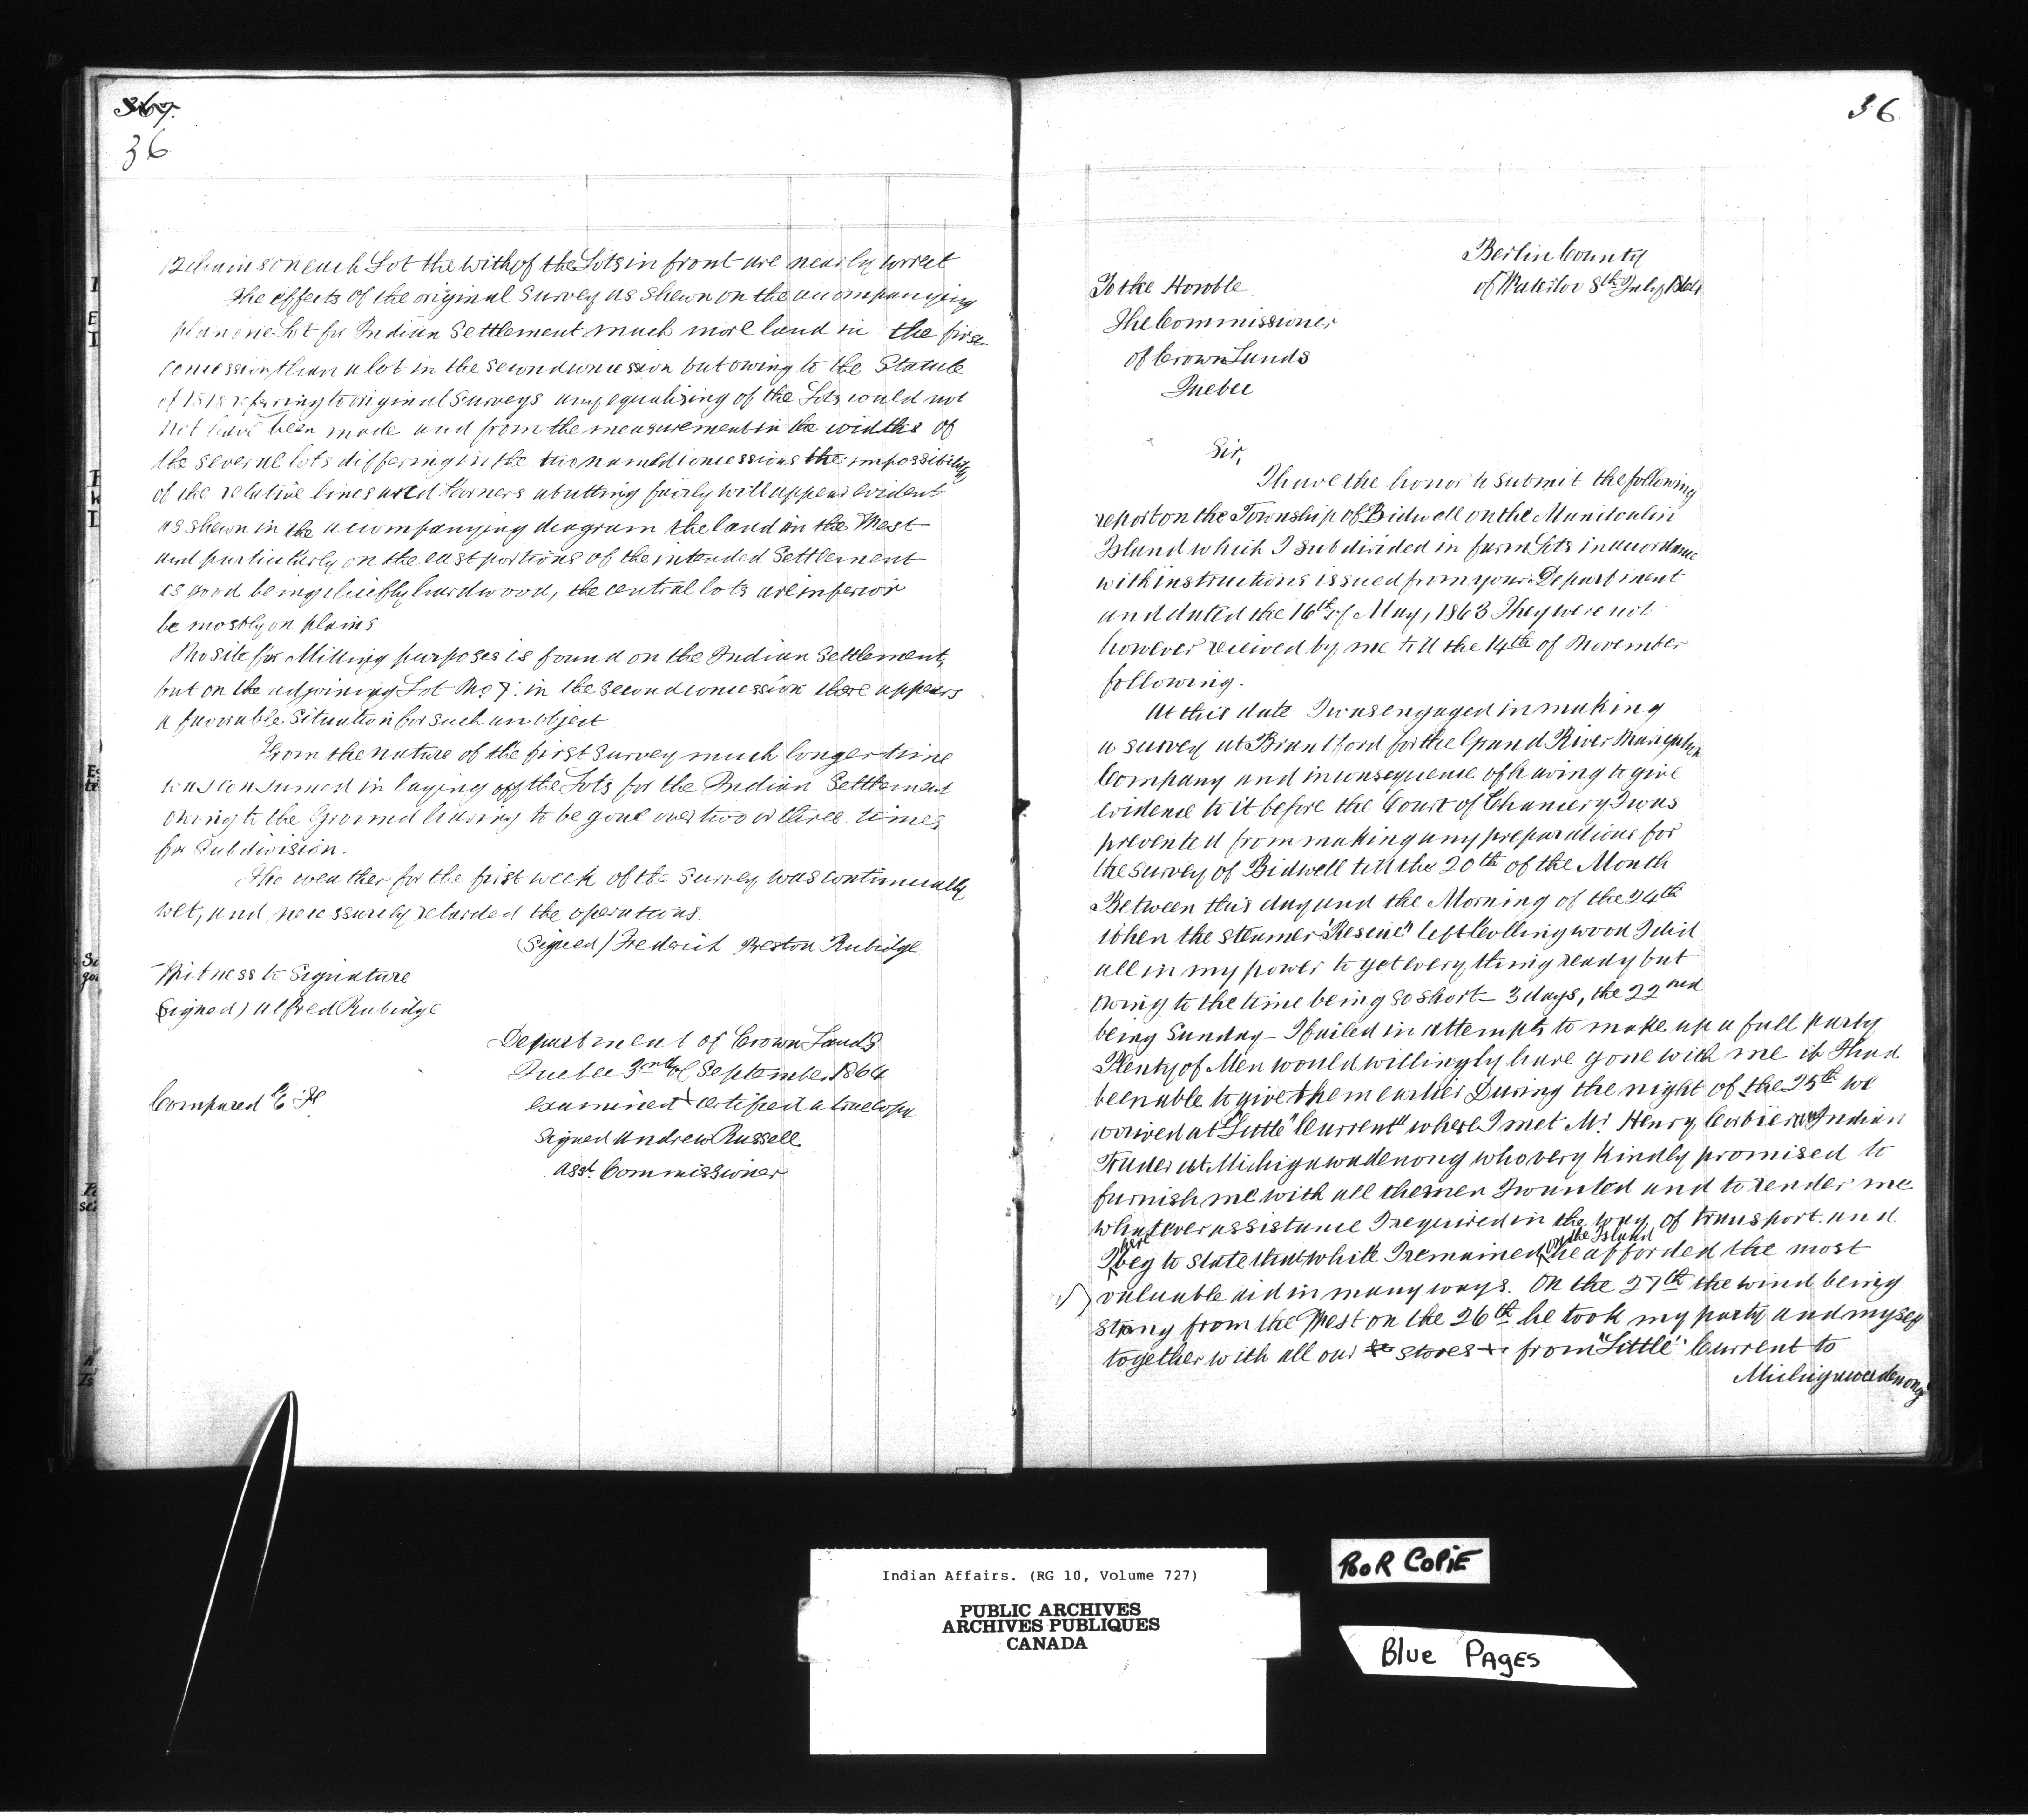 367.
36
12 chains on each Lot the with of the Lots in front are nearly correct
The effects of the original Survey as shewn on the accompanying
plan one Lot for Indian Settlement much more land in the first
concession than a lot in the second concession but owing to the Statute
of 1818 refering to original Surveys any equalising of the Lots could not
not have been made and from the measurement in the widths of
the several lots differing in the two named concessions the impossibility
of the relative lines and Corners abutting fairly will appear evident
as shewn in the accompanying diagram the land in the West
and particularly on the east portions of the intended Settlement
is good being chiefly hardwood, the central lots are inferior
be mostly on plains
No site for Milling purposes is found on the Indian Settlement,
but on the adjoining Lot No 7. in the second concession there appears
a favorable Situation for such an object
From the nature of the first Survey much longer time
was consumed in laying off the Lots for the Indian Settlement
owing to the Ground having to be gone over two or three times
for Subdivision.
The weather for the first week of the Survey was continually
wet, and necessarily retarded the operations.
(Signed) Frederick Preston Rubidge
Witness to Signature
(Signed) Alfred Rubidge
Department of Crown Lands
Quebec 3rd of September 1864
Compared
examined & certified a true copy
Signed Andrew Russell
Asst. Commissioner
36
Berlin County
of Waterloo 8th July 1864
To the Honble
The Commissioner
of Crown Lands
Quebec
Sir,
I have the honor to submit the following
report on the Township of Bidwell on the Manitoulin
Island which I subdivided in farm Lots in accordance
with instructions issued from your Department
and dated the 16th of May, 1863 They were not
however recieved by me till the 14th of November
following.
At this date I was engaged in making
a survey at Brantford for the Grand River Navigation
Company and in consequence of having to give
evidence to it before the Court of Chancery I was
prevented from making any preparations for
the survey of Bidwell till the 20th of the Month
Between this day and the Morning of the 24th
When the steamer "Rescue" left Collingwood I did
all in my power to get everything ready but
owing to the time being so short - 3 days, the 22nd
being Sunday - I failed in attempts to make up a full party
Plenty of Men would willingly have gone with me if I had
been able to give them earlier During the night of the 25th we
arrived at "Little Current" where I met Mr Henry Corbiere an Indian
Trader at Michigawadenong who very kindly promised to
furnish me with all the men I wanted and to render me
whatever assistance I required in the way of transport. and
I here beg to state that while I remained on the Island he afforded the most
valuable aid in many ways. On the 27th the wind being
strong from the West on the 26th he took my party and myself
together with all our stores from "Little" Current to
Michigawadenong
Indian Affairs. (RG 10, Volume 727)
PUBLIC ARCHIVES
ARCHIVES PUBLIQUES
CANADA
POOR COPIE
Blue PAGES